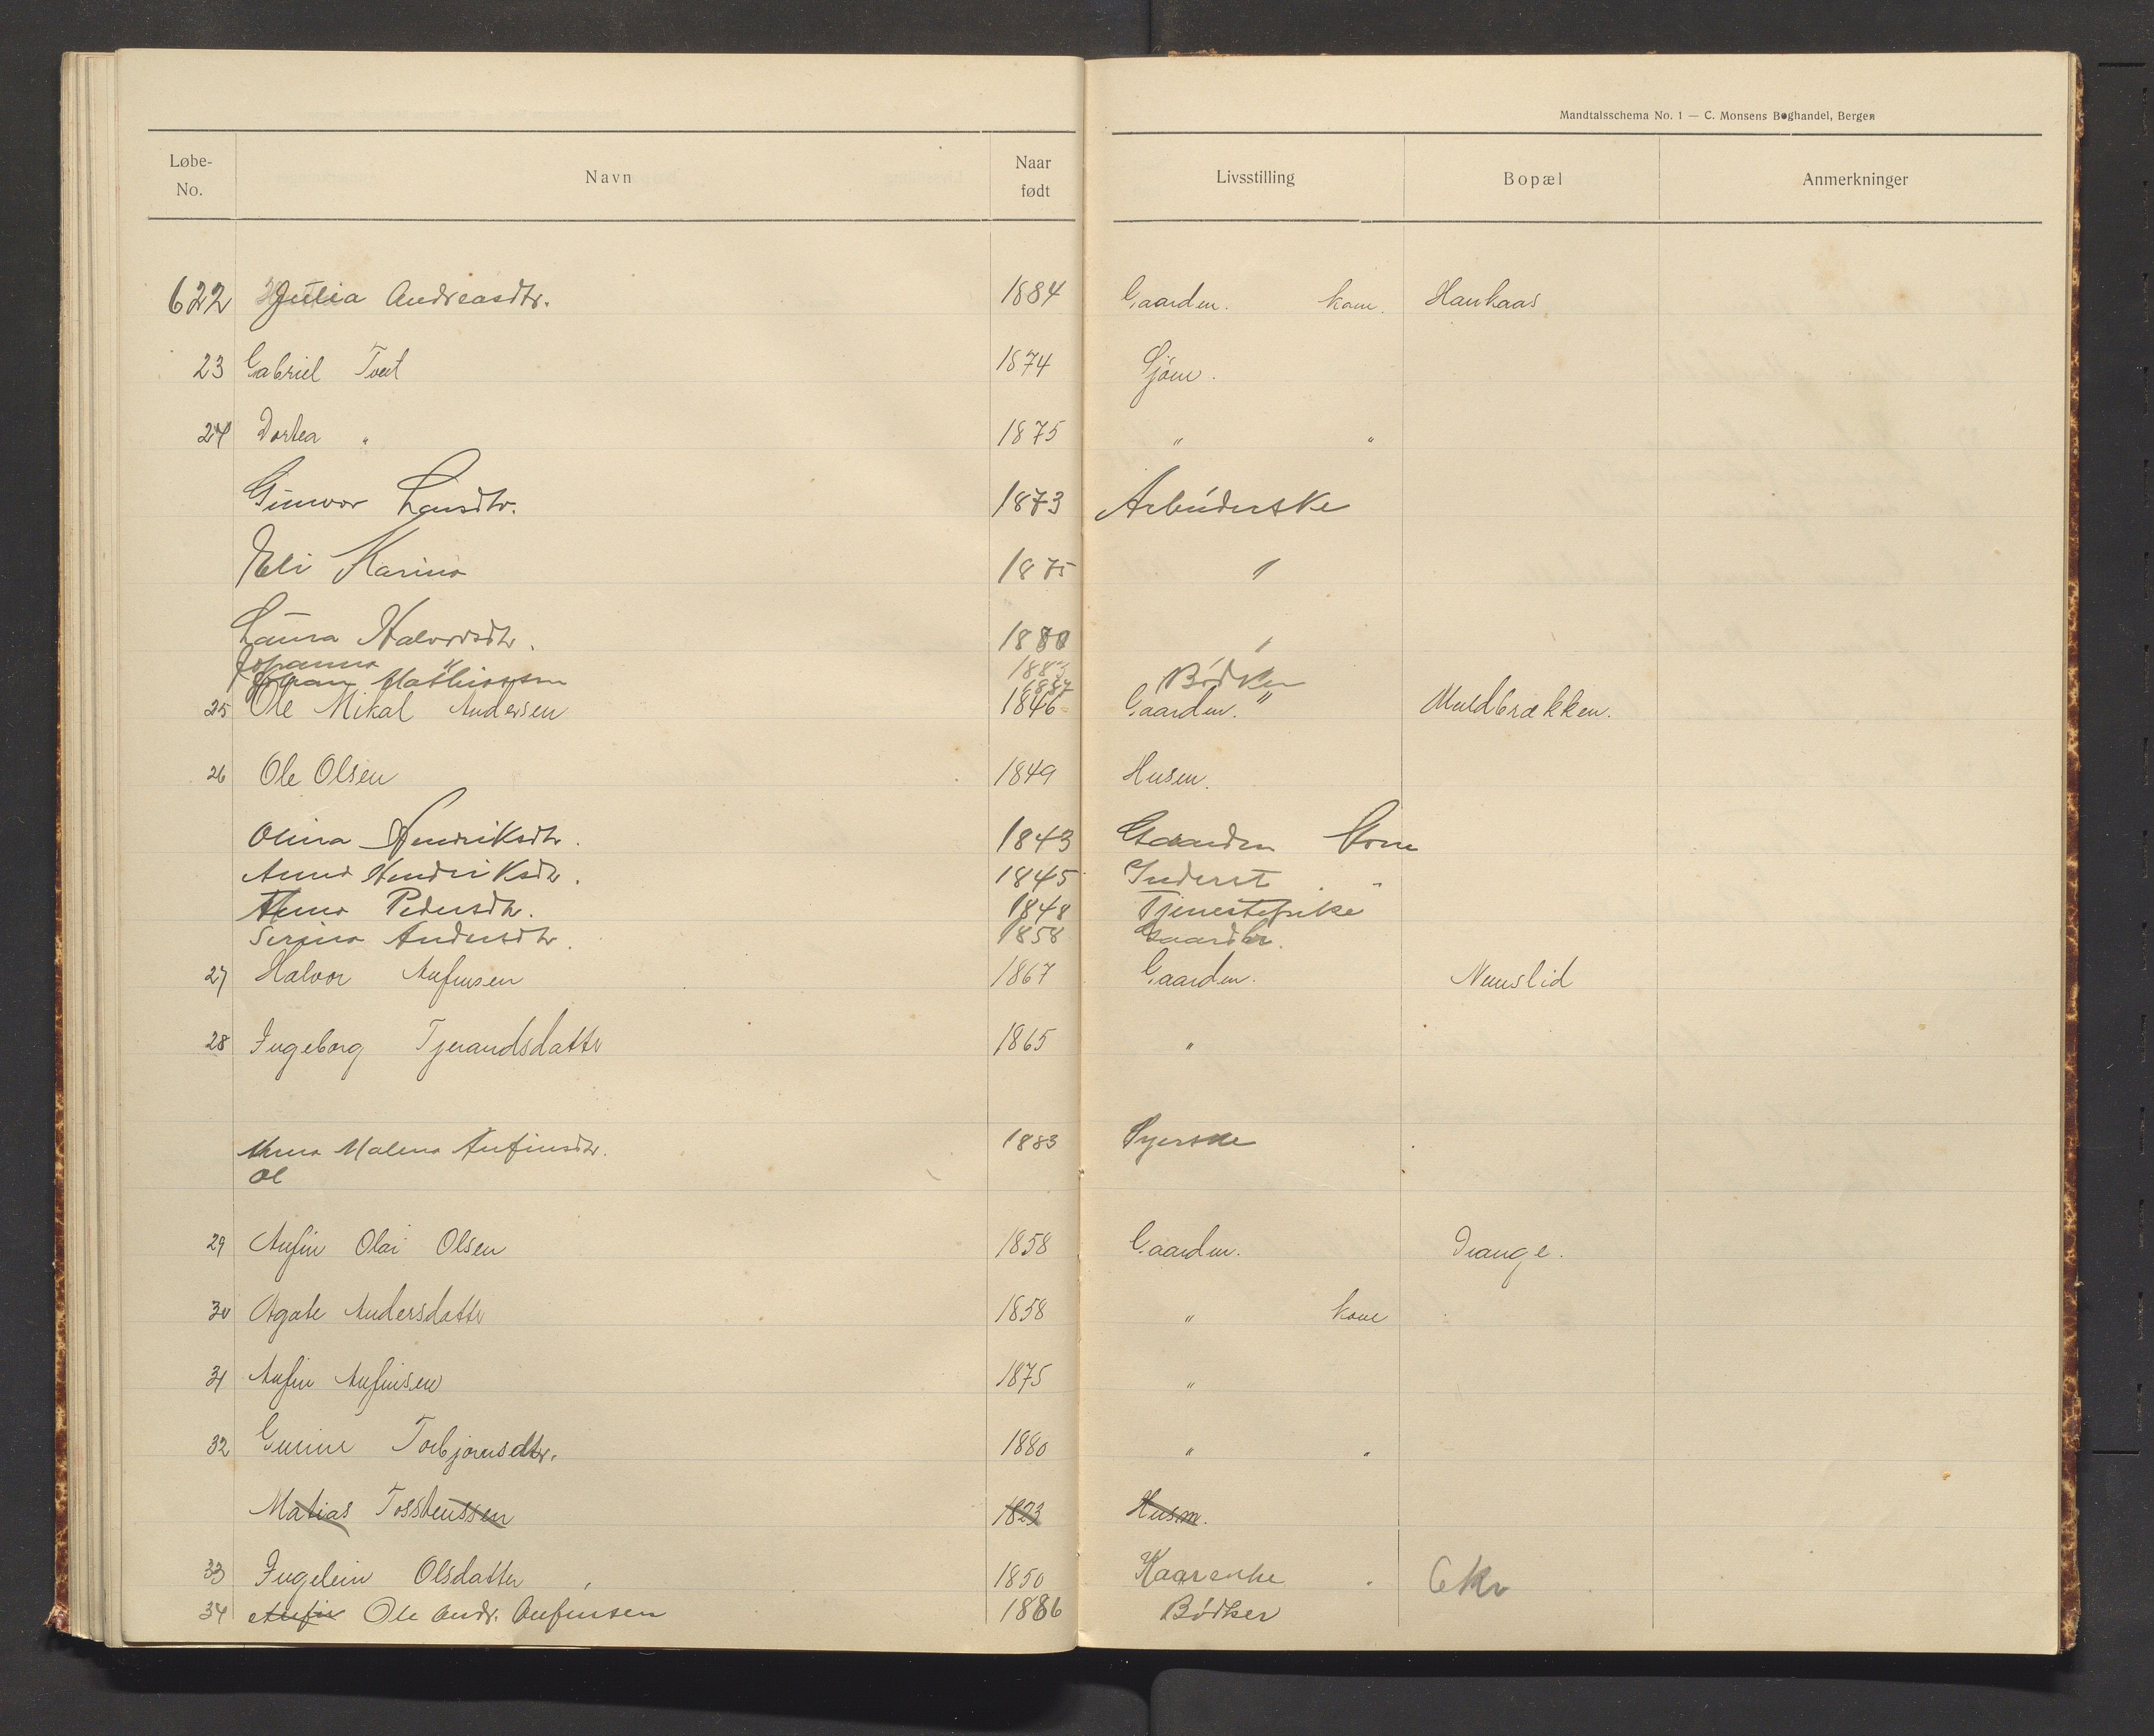 Mandtalsschema No. 1 — C. Monsens Boghandel, Bergen
Løbe-No. Navn Naar født Livsstilling Bopæl Anmerkninger
622 Julia Andreasdtr. 1884 Gaardm. kone. Haukaas
23 Gabriel Tveit 1874 Sjøm.
24 Dortea " 1875 " "
Gunvor Larsdtr. 1873 Arbeiderske
Eli Karina 1875 "
Laura Halvorsdtr. 1880 "
Johanna " 1883
Johan Mathiassen 1887 Bødker
25 Ole Mikal Andersen 1846 Gaardm. " Muldbrækken.
26 Ole Olsen 1849 Husm.
Olina Hendriksdtr. 1843 Gaardm Kone
Anna Hendriksdtr. 1845 Inderst "
Anna Pedersdtr. 1848 Tjenestepike
Serina Andersdtr. 1858 Gaardbr.
27 Halvor Anfinsen 1867 Gaardm. Nunslid
28 Ingeborg Tjerandsdatter 1865 "
Anna Malena Anfinsdtr. 1883 Syerske
Ol
29 Anfin Olai Olsen 1858 Gaardm. Drange.
30 Agate Andersdatter 1858 " kone
31 Anfin Anfinsen 1875 "
32 Gurine Torbjørnsdtr. 1880 " "
Matias Tosstenssen 1823 Husm.
33 Ingeleiv Olsdatter 1850 Kaarenke 6 kr
34 Anfin Ole Andr. Anfinsen 1886 Bødker